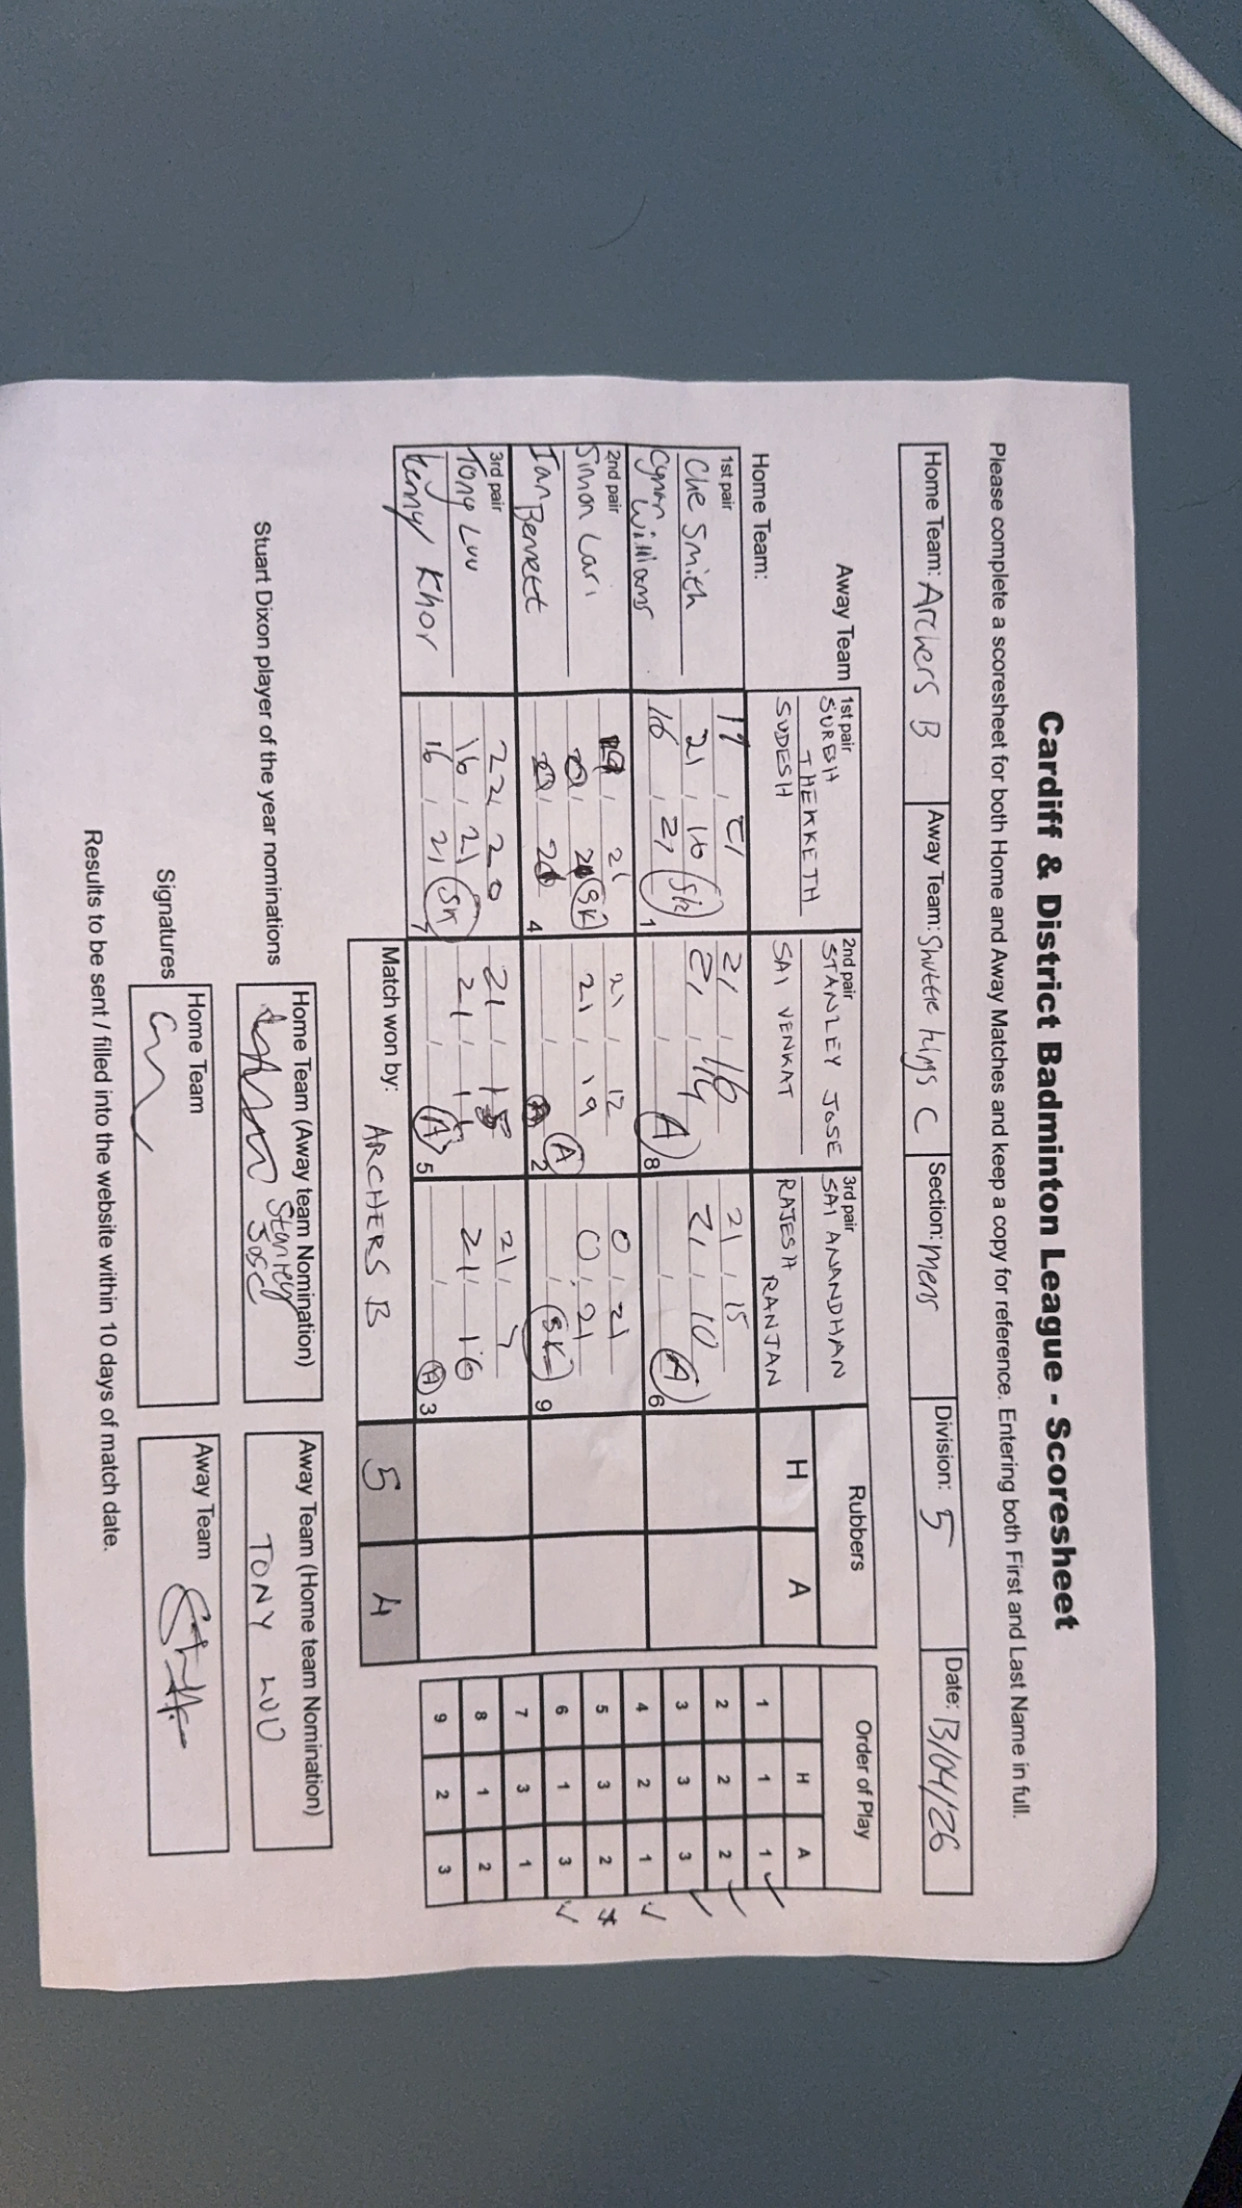 Cardiff & District Badminton League - Scoresheet
Please complete a scoresheet for both Home and Away Matches and keep a copy for reference. Entering both First and Last Name in full.
Home Team: Archers B Away Team: Shuttle Kings C Section: Mens Division: 5 Date: 13/04/26
Away Team 1st pair SURESH THEKKETH SUDESH 2nd pair STANLEY JOSE SAI VENKAT 3rd pair SAI ANANDHAN RAJESH RANJAN Rubbers
Home Team: H A
1st pair Che Smith Cynan Williams
17, 21 21, 16 16, 21 SK 1
21, 16 21, 14 A 8
21, 15 21, 10 A 6
2nd pair Simon Lari Ian Bennett
21 SK 4
21, 12 21, 19 A 2
0, 21 0, 21 SK 9
3rd pair Tony Luu Kenny Khor
22, 20 16, 21 16, 21 SK 7
21, 21, A 5
21, 7 21, 16 A 3
Match won by: ARCHERS B 5 4
Order of Play
H A
1 1 1 ✓
2 2 2 ✓
3 3 3 ✓
4 2 1 ✓
5 3 2
6 1 3 ✓
7 3 1
8 1 2
9 2 3
Stuart Dixon player of the year nominations
Home Team (Away team Nomination)
Stanley Jose
Away Team (Home team Nomination)
TONY LUU
Signatures
Home Team
Away Team
Results to be sent / filled into the website within 10 days of match date.